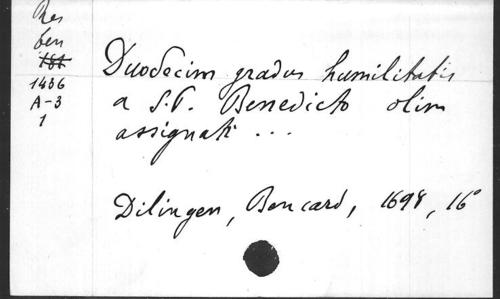 Res
ben
181
1436
A-3
1
Duodecim gradus humilitatis
a S.P. Benedicto olim
assignati ...
Dilingen, Bencard, 1698, 16°